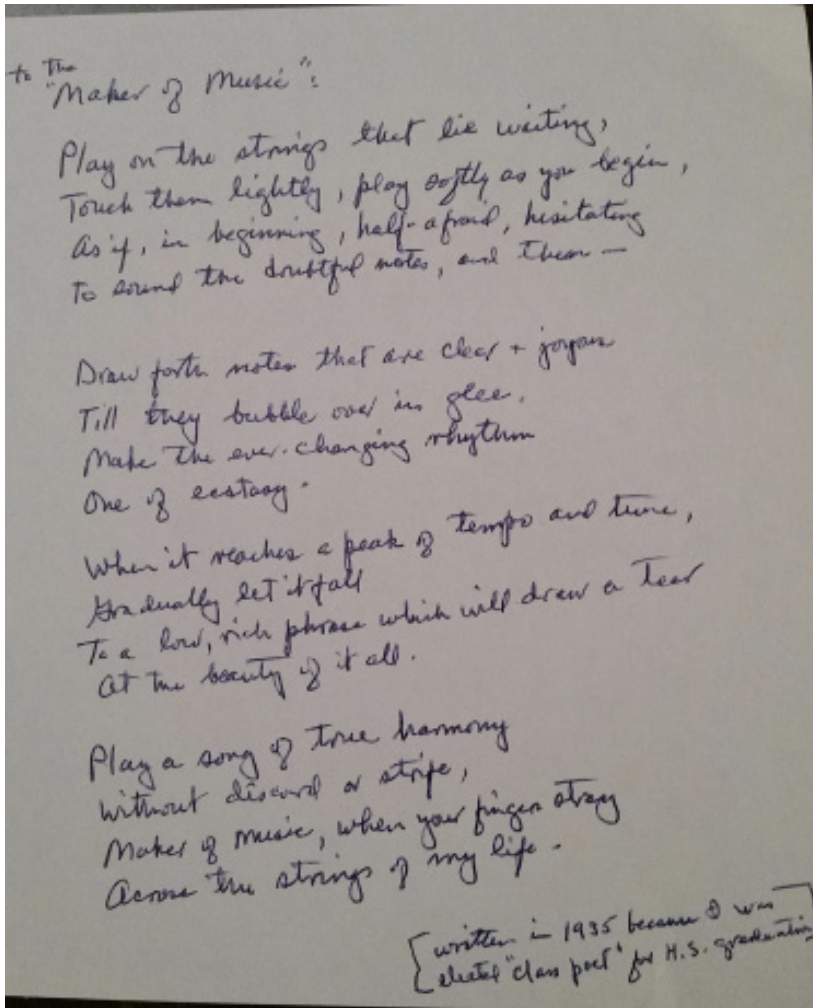 to the
"Maker of Music":
Play on the strings that lie waiting,
Touch them lightly, play softly as you begin,
As if, in beginning, half-afraid, hesitating
To sound the doubtful notes, and then —
Draw forth notes that are clear + joyous
Till they bubble over in glee.
Make the ever-changing rhythm
One of ecstasy.
When it reaches a peak of tempo and tune,
Gradually let it fall
To a low, rich phrase which will draw a tear
At the beauty of it all.
Play a song of true harmony
Without discord or strife,
Maker of music, when your fingers stray
Across the strings of my life.
[written in 1935 because I was
elected "class poet" for H.S. graduation]